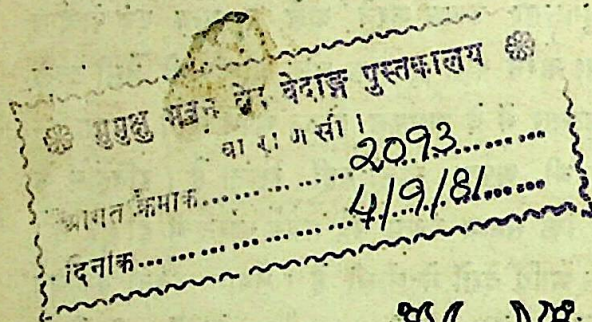 ❀ मुमुक्षु भवन वेद वेदाङ्ग पुस्तकालय ❀
वा रा ण सी ।
आगत क्रमांक............2093......
दिनांक............4/9/81......